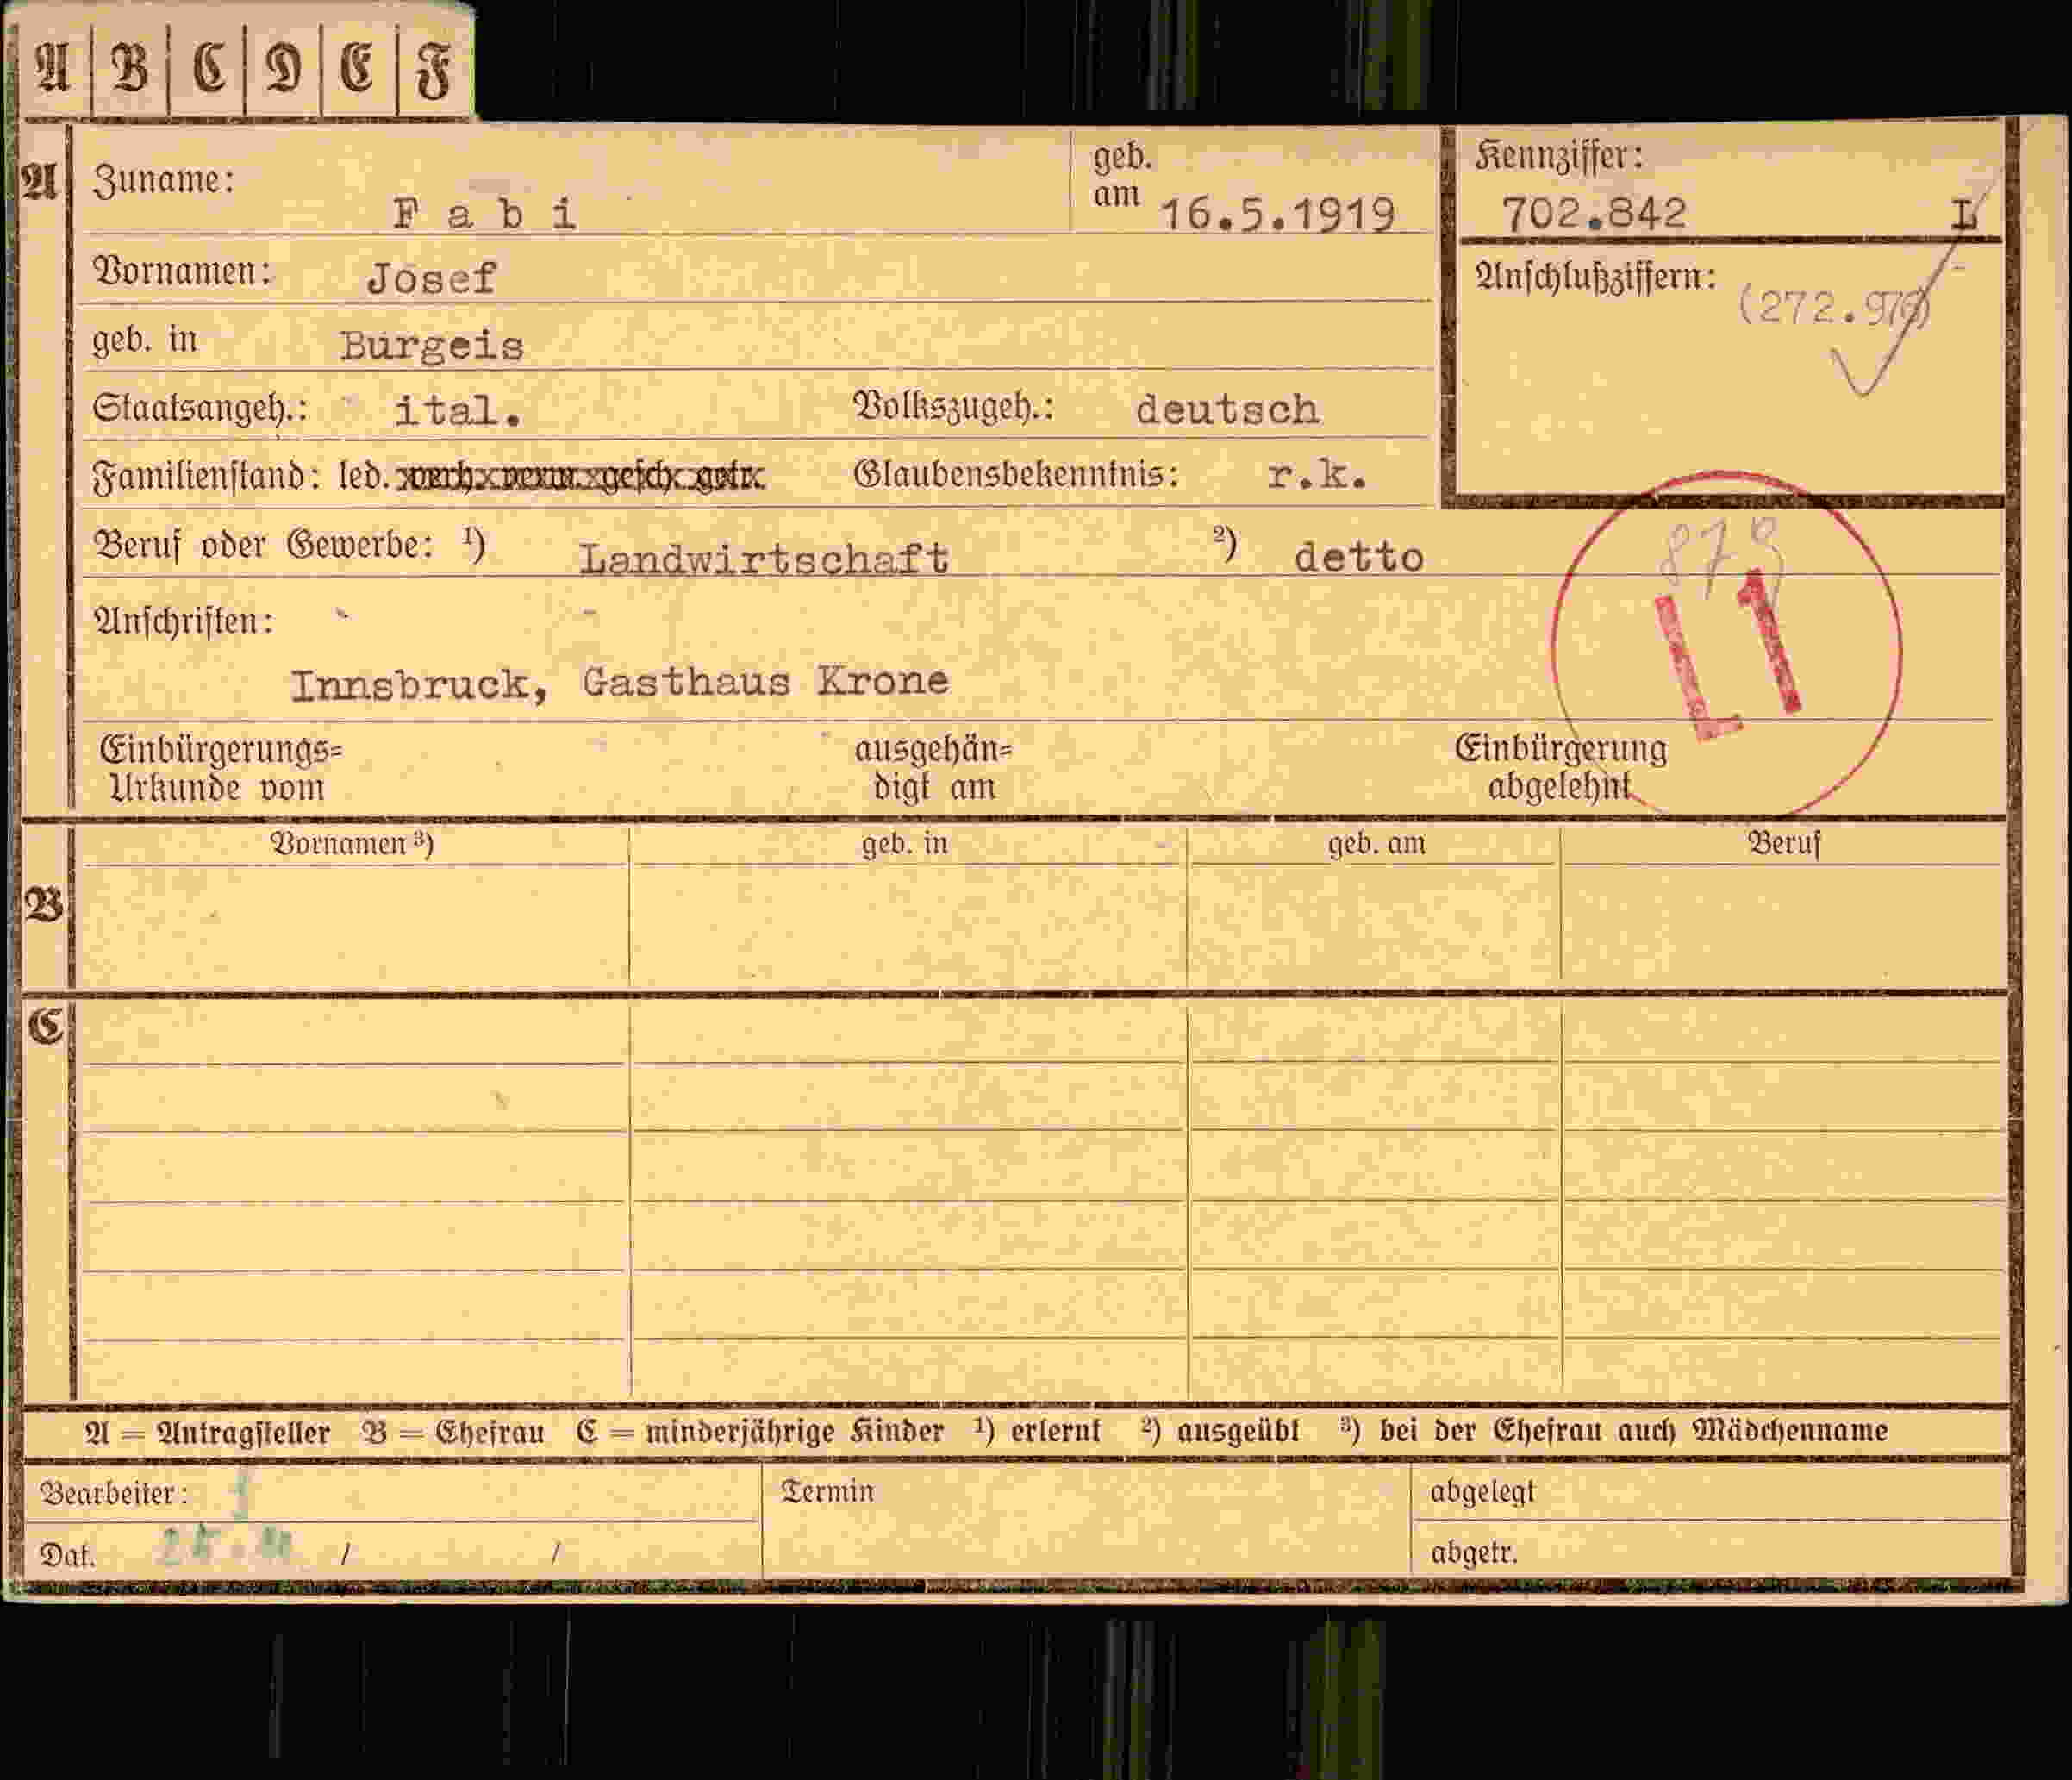 A B C D E F
A Zuname: Fabi geb. am 16.5.1919 Kennziffer: 702.842 L
Vornamen: Josef Anschlußziffern:
geb. in Burgeis
Staatsangeh.: ital. Volkszugeh.: deutsch
Familienstand: led. verh. verw. gesch. getr. Glaubensbekenntnis: r.k.
Beruf oder Gewerbe: ¹) Landwirtschaft ²) detto
Anschriften: L 1
Innsbruck, Gasthaus Krone
Einbürgerungs= ausgehän= Einbürgerung
Urkunde vom digt am abgelehnt
Vornamen ³) geb. in geb. am Beruf
B
C
A = Antragsteller B = Ehefrau C = minderjährige Kinder ¹) erlernt ²) ausgeübt ³) bei der Ehefrau auch Mädchenname
Bearbeiter: Termin abgelegt
Dat. / / abgetr.